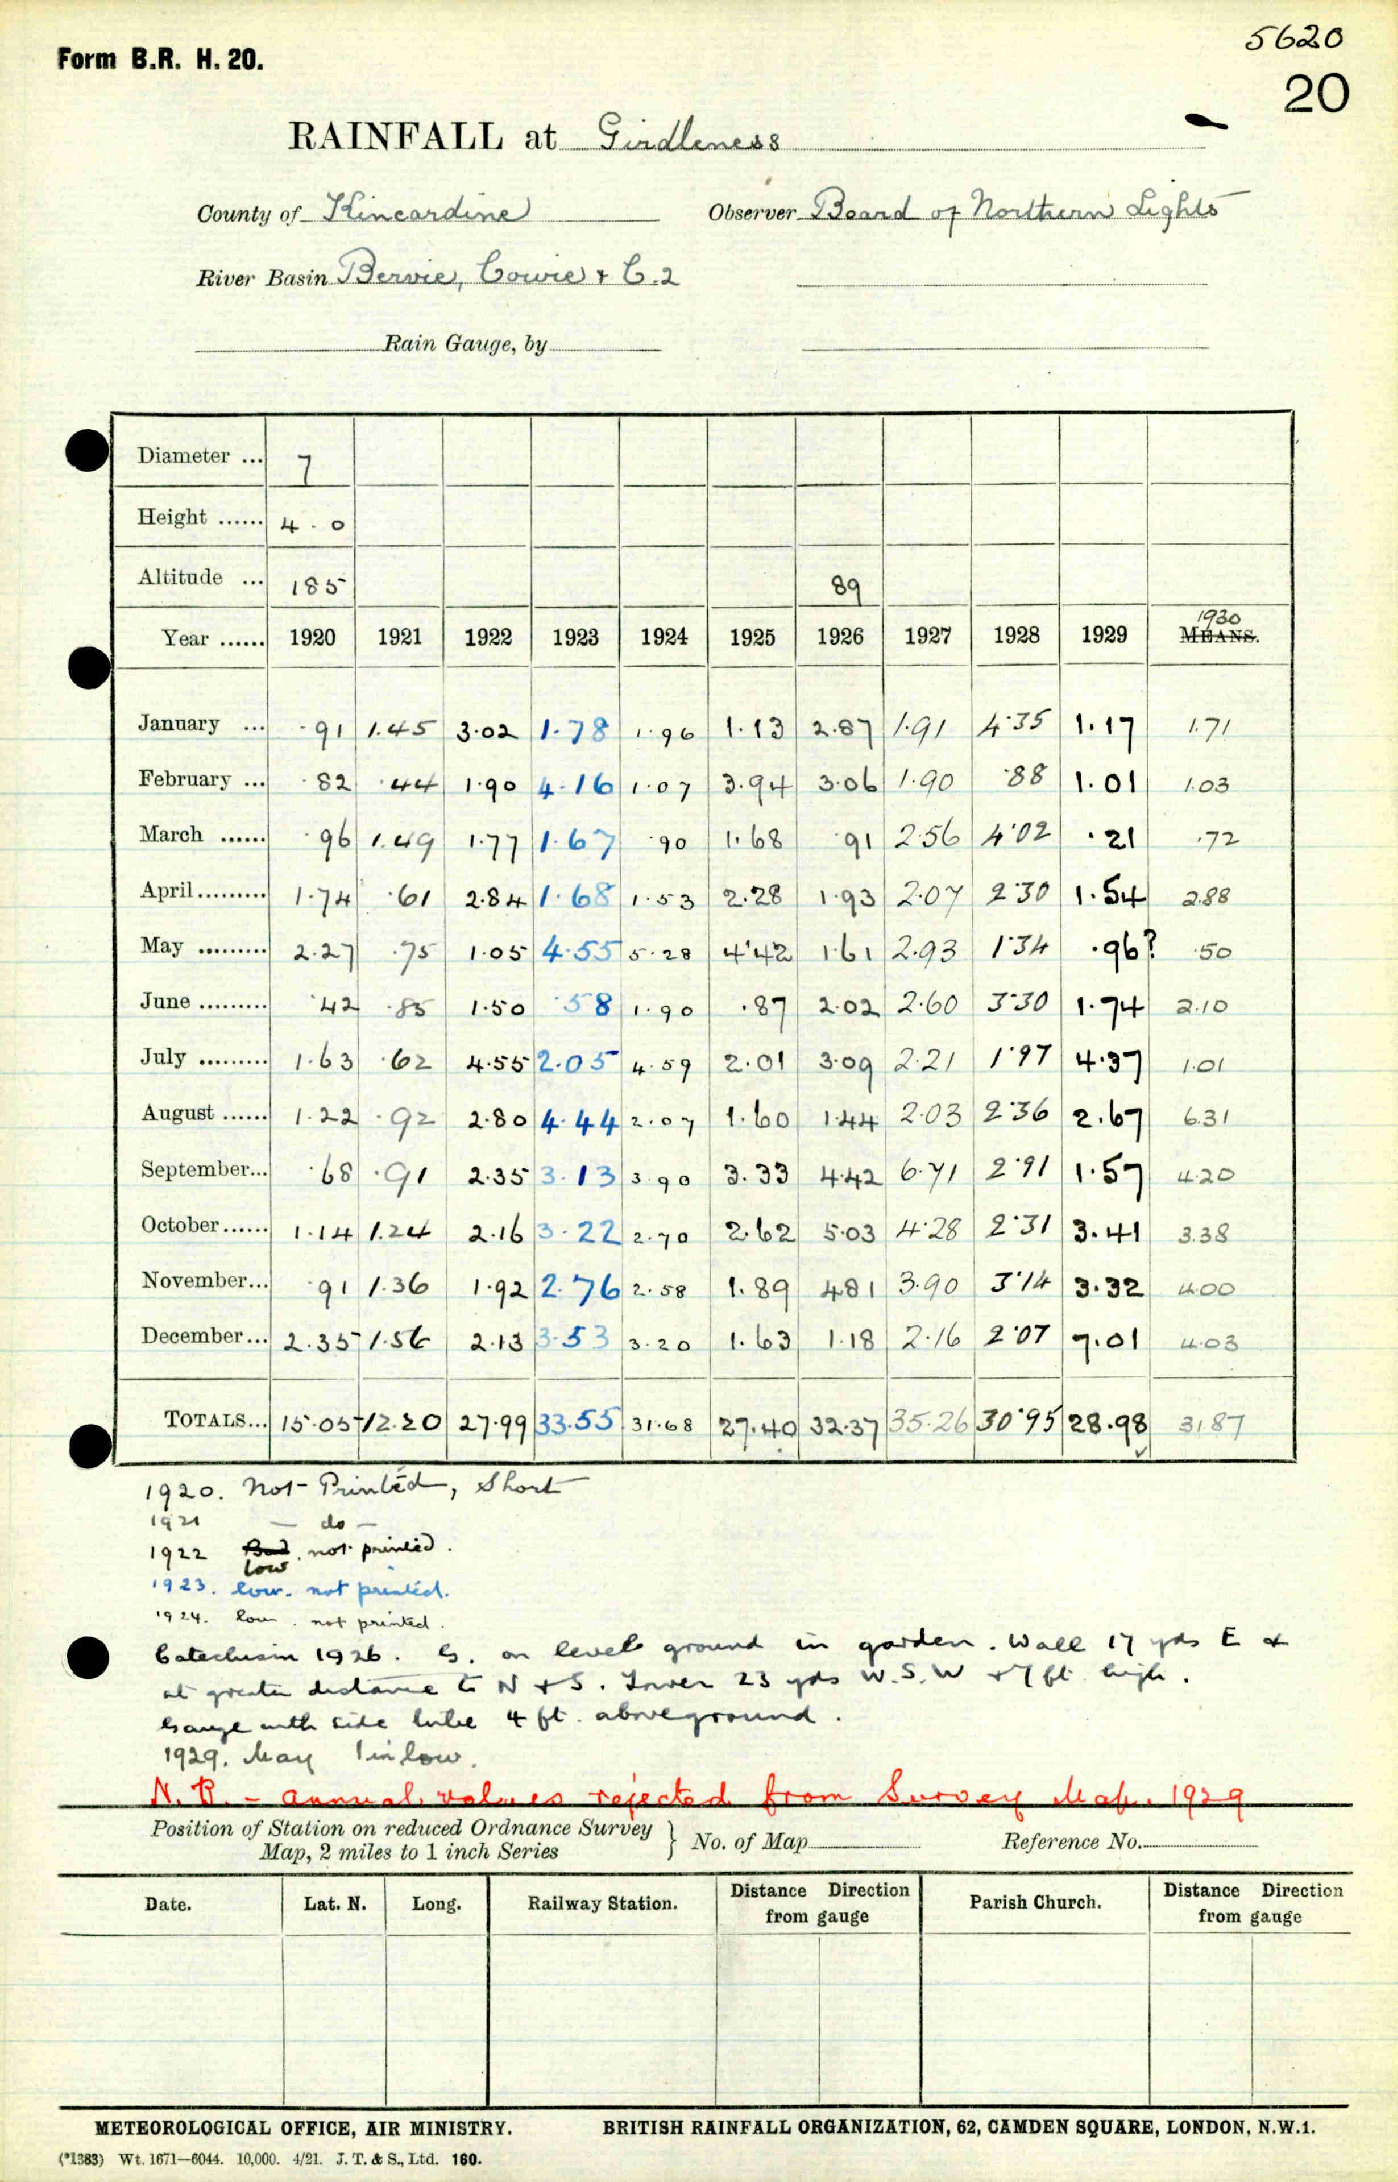 5620
Form B.R. H. 20.
20
RAINFALL at Girdleness
County of Kincardine Observer Board of Northern Lights
River Basin Bervie, Cowie & C.2
Rain Gauge, by
Diameter ... 7
Height ...... 4 . 0
Altitude ... 185 89
1930
Year ...... 1920 1921 1922 1923 1924 1925 1926 1927 1928 1929 MEANS.
January ... ·91 1.45 3·02 1·78 1·96 1·13 2·87 1·91 4·35 1·17 1.71
February ... ·82 ·44 1·90 4·16 1·07 3·94 3·06 1·90 ·88 1·01 1.03
March ...... ·96 1.49 1·77 1·67 ·90 1·68 ·91 2·56 4·02 ·21 ·72
April ......... 1·74 ·61 2·84 1·68 1·53 2·28 1·93 2·07 2·30 1·54 2.88
May ......... 2·27 ·75 1·05 4·55 5·28 4·42 1·61 2·93 1·34 ·96? ·50
June ......... ·42 ·85 1·50 ·58 1·90 ·87 2·02 2·60 3·30 1·74 2.10
July ......... 1·63 ·62 4·55 2·05 4·59 2·01 3·09 2·21 1·97 4·37 1.01
August ...... 1·22 ·92 2·80 4·44 2·07 1·60 1·44 2·03 2·36 2·67 6.31
September... ·68 ·91 2·35 3·13 3·90 3·33 4·42 6·71 2·91 1·57 4.20
October ...... 1·14 1.24 2·16 3·22 2·70 2·62 5·03 4·28 2·31 3·41 3.38
November... ·91 1·36 1·92 2·76 2·58 1·89 4·81 3·90 3·14 3·32 4.00
December ... 2·35 1·56 2·13 3·53 3·20 1·63 1·18 2·16 2·07 7·01 4.03
TOTALS... 15·05 12·20 27·99 33·55 31·68 27·40 32·37 35·26 30·95 28·98 31.87
1920. Not Printed, Short
1921 — do —
1922 Bad. not printed.
low
1923. low. not printed.
1924. low. not printed.
Catechism 1926. G. on level ground in garden. Wall 17 yds E &
at greater distance to N & S. Tower 23 yds W.S.W & 7 ft high.
Gauge with side tube 4 ft. above ground.
1929. May 1 in low.
N.B. – annual values rejected from Survey Map. 1929
Position of Station on reduced Ordnance Survey
Map, 2 miles to 1 inch Series } No. of Map Reference No.
Date. Lat. N. Long. Railway Station. Distance Direction from gauge Parish Church. Distance Direction from gauge
METEOROLOGICAL OFFICE, AIR MINISTRY. BRITISH RAINFALL ORGANIZATION, 62, CAMDEN SQUARE, LONDON, N.W.1.
(*1383) Wt. 1671—6044. 10,000. 4/21. J. T. & S., Ltd. 160.